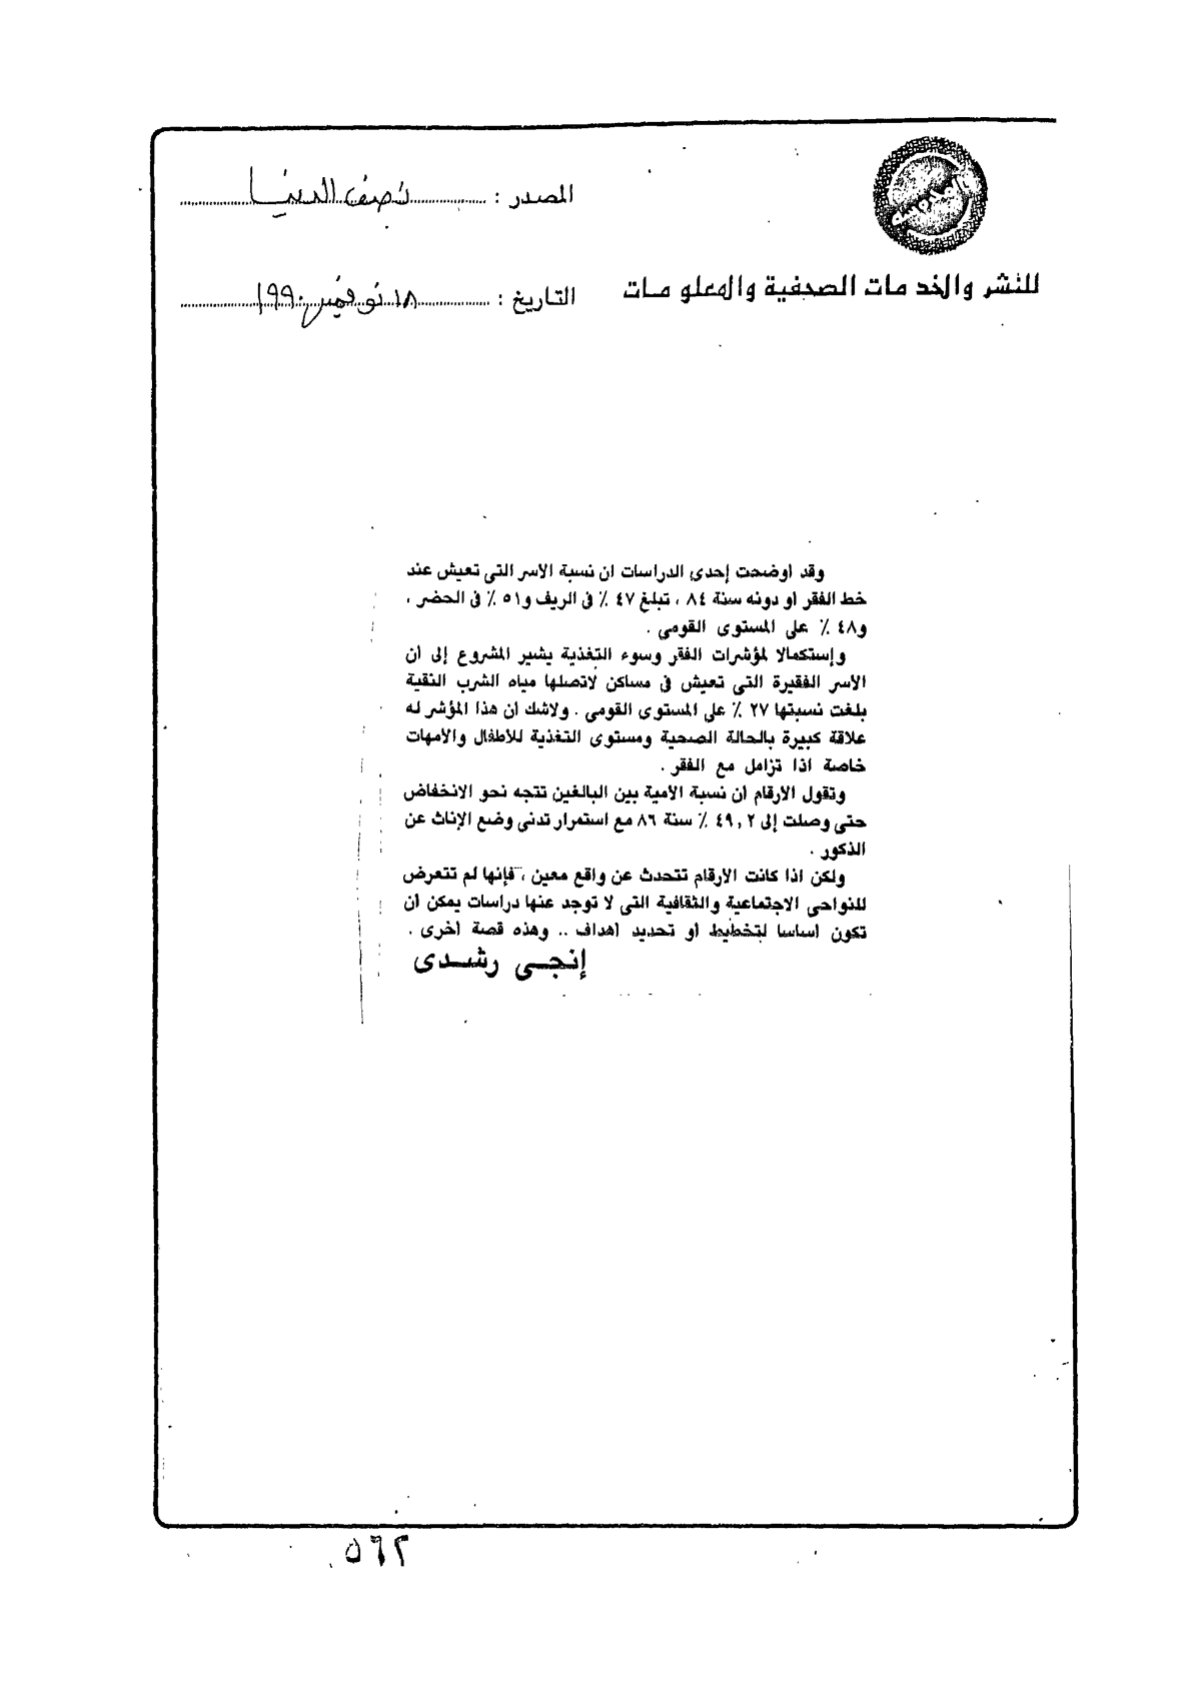 المصدر : نصف الدنيا
للنشر والخدمات الصحفية والمعلومات
التاريخ : ١٨ نوفمبر ١٩٩٠
وقد أوضحت إحدى الدراسات ان نسبة الأسر التى تعيش عند
خط الفقر أو دونه سنة ٨٤ ، تبلغ ٤٧ ٪ فى الريف و٥١ ٪ فى الحضر ،
و٤٨ ٪ على المستوى القومى .
وإستكمالا لمؤشرات الفقر وسوء التغذية يشير المشروع إلى أن
الأسر الفقيرة التى تعيش فى مساكن لاتصلها مياه الشرب النقية
بلغت نسبتها ٢٧ ٪ على المستوى القومى . ولاشك أن هذا المؤشر له
علاقة كبيرة بالحالة الصحية ومستوى التغذية للأطفال والأمهات
خاصة اذا تزامل مع الفقر .
وتقول الأرقام أن نسبة الأمية بين البالغين تتجه نحو الانخفاض
حتى وصلت إلى ٤٩,٢ ٪ سنة ٨٦ مع استمرار تدنى وضع الإناث عن
الذكور .
ولكن اذا كانت الأرقام تتحدث عن واقع معين ، فإنها لم تتعرض
للنواحى الاجتماعية والثقافية التى لا توجد عنها دراسات يمكن أن
تكون أساسا لتخطيط أو تحديد أهداف .. وهذه قصة أخرى .
إنجـى رشـدى
٥٦٢